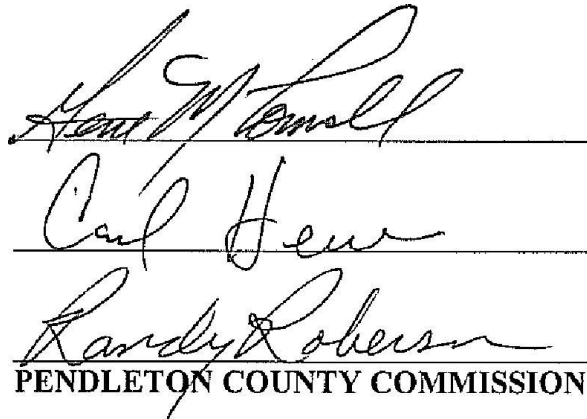 Gene M
Carl
Randy Roberson
PENDLETON COUNTY COMMISSION